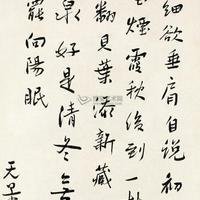 細欲垂肩自說初
煙霞秋後到一
翻貝葉添新藏
泉好是清冬無
罷向陽眠
天